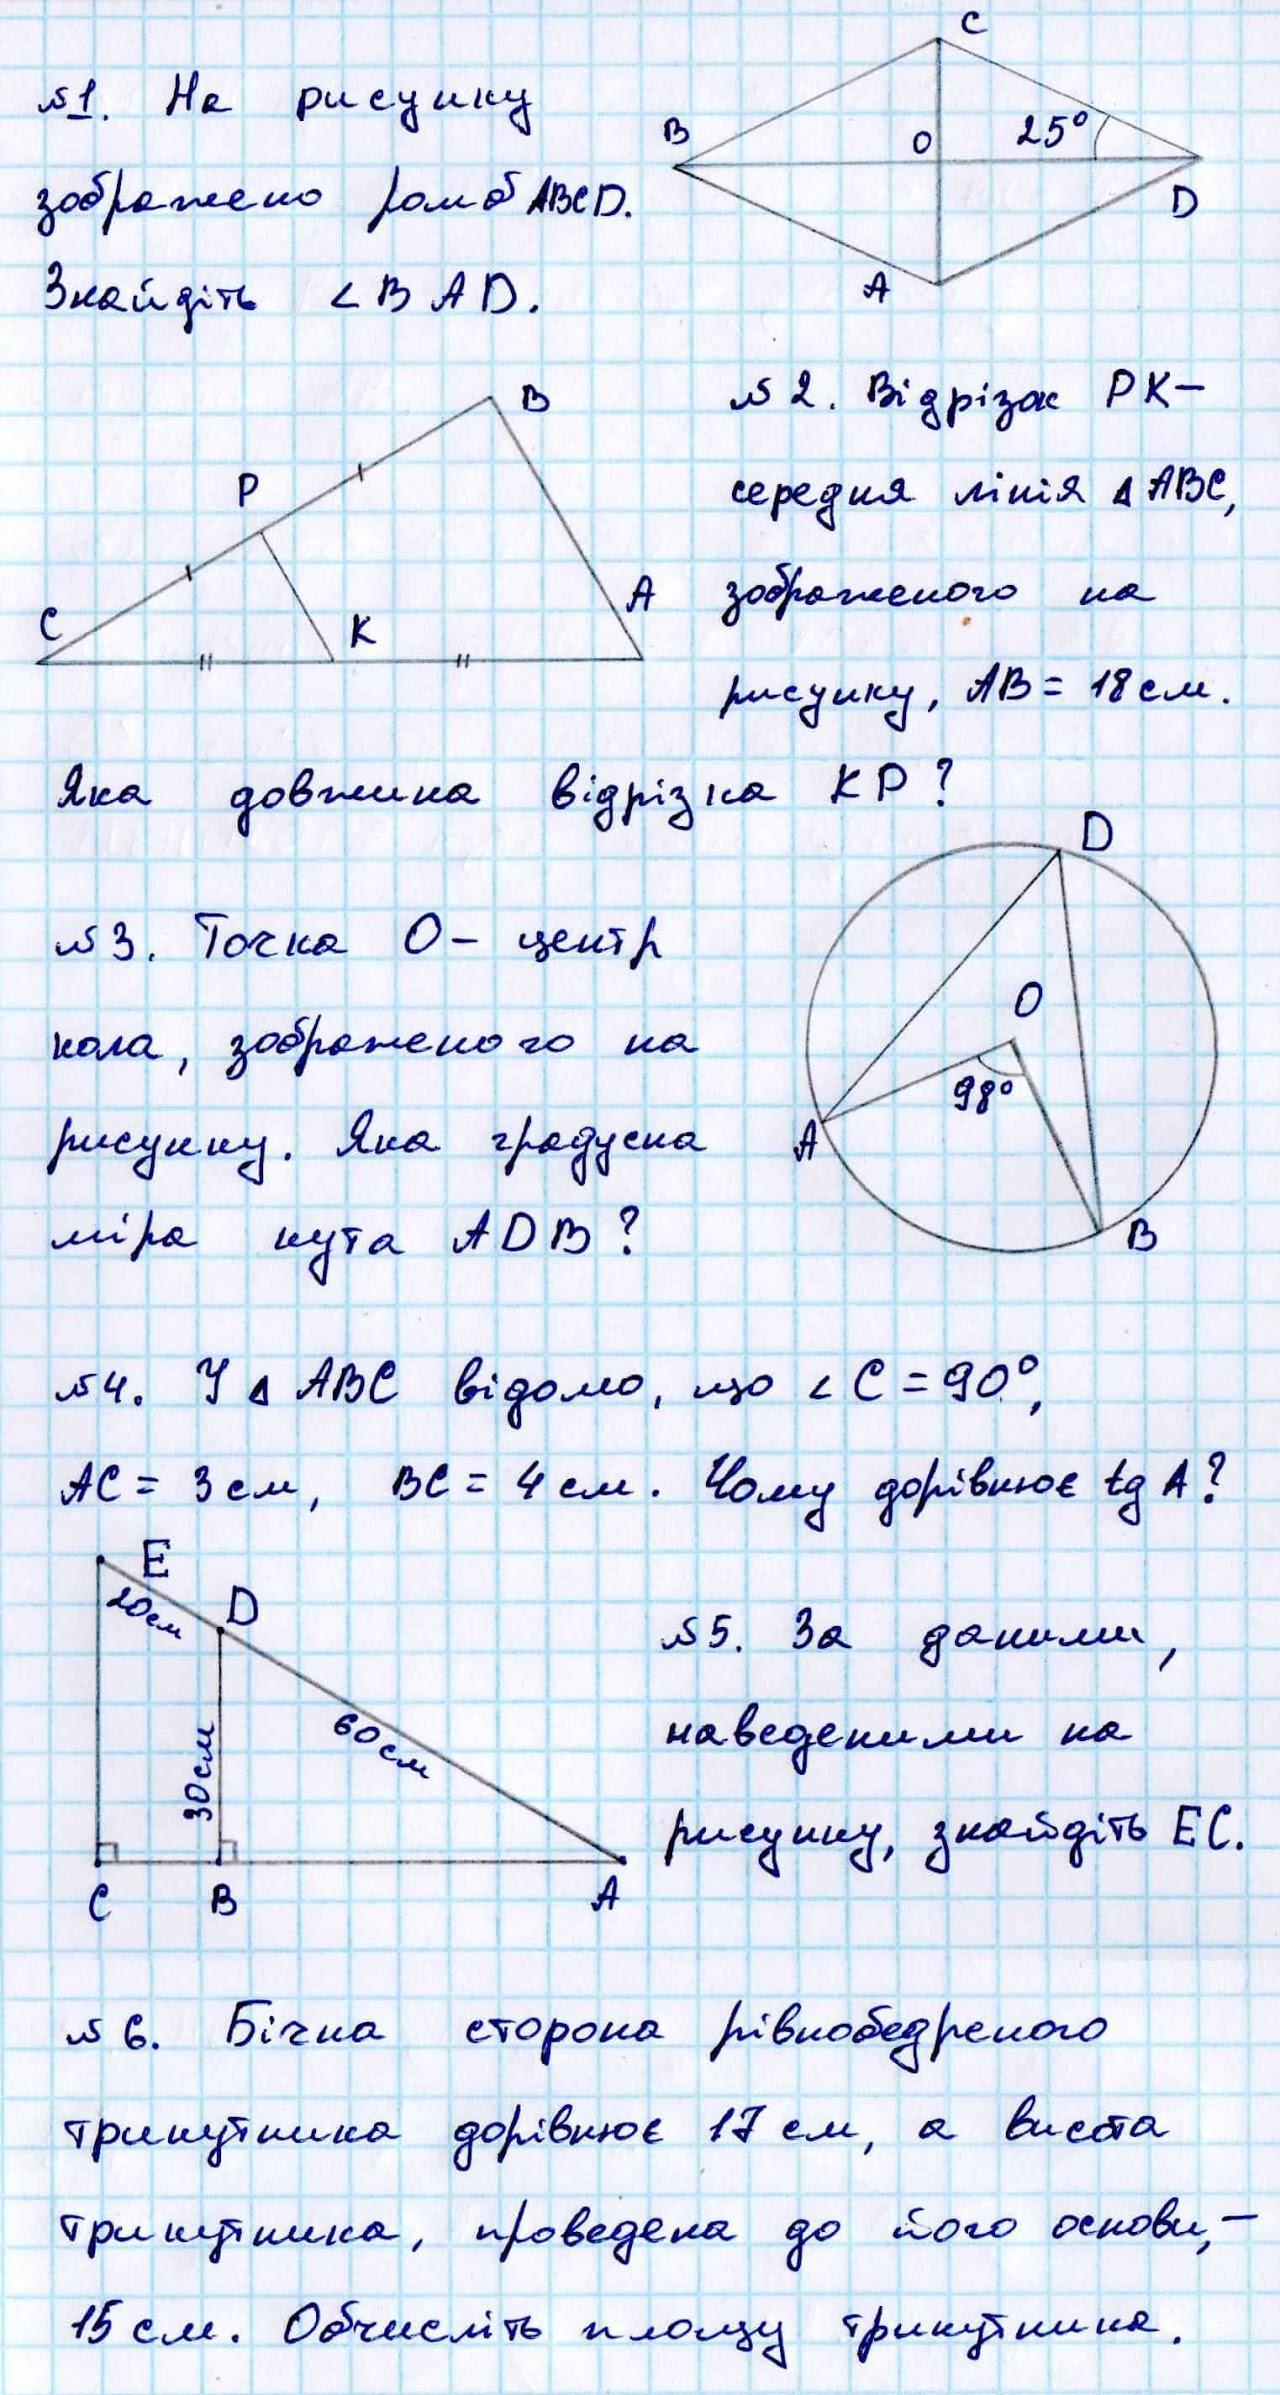 C
№1. На рисунку
B
O
25°
зображено ромб ABCD.
D
Знайдіть <BAD.
A
B
№2. Відрізок PK-
P
середня лінія △ABC,
C
K
A
зображеного на
рисунку, AB = 18 см.
Яка довжина відрізка KP?
D
№3. Точка O - центр
O
кола, зображеного на
98°
A
рисунку. Яка градусна
міра кута ADB?
B
№4. У △ABC відомо, що <C = 90°,
AC = 3 см, BC = 4 см. Чому дорівнює tg A?
E
20см
D
№5. За даними,
60см
наведеними на
30см
рисунку, знайдіть EC.
C
B
A
№6. Бічна сторона рівнобедреного
трикутника дорівнює 17 см, а висота
трикутника, проведена до його основи, -
15 см. Обчисліть площу трикутника.